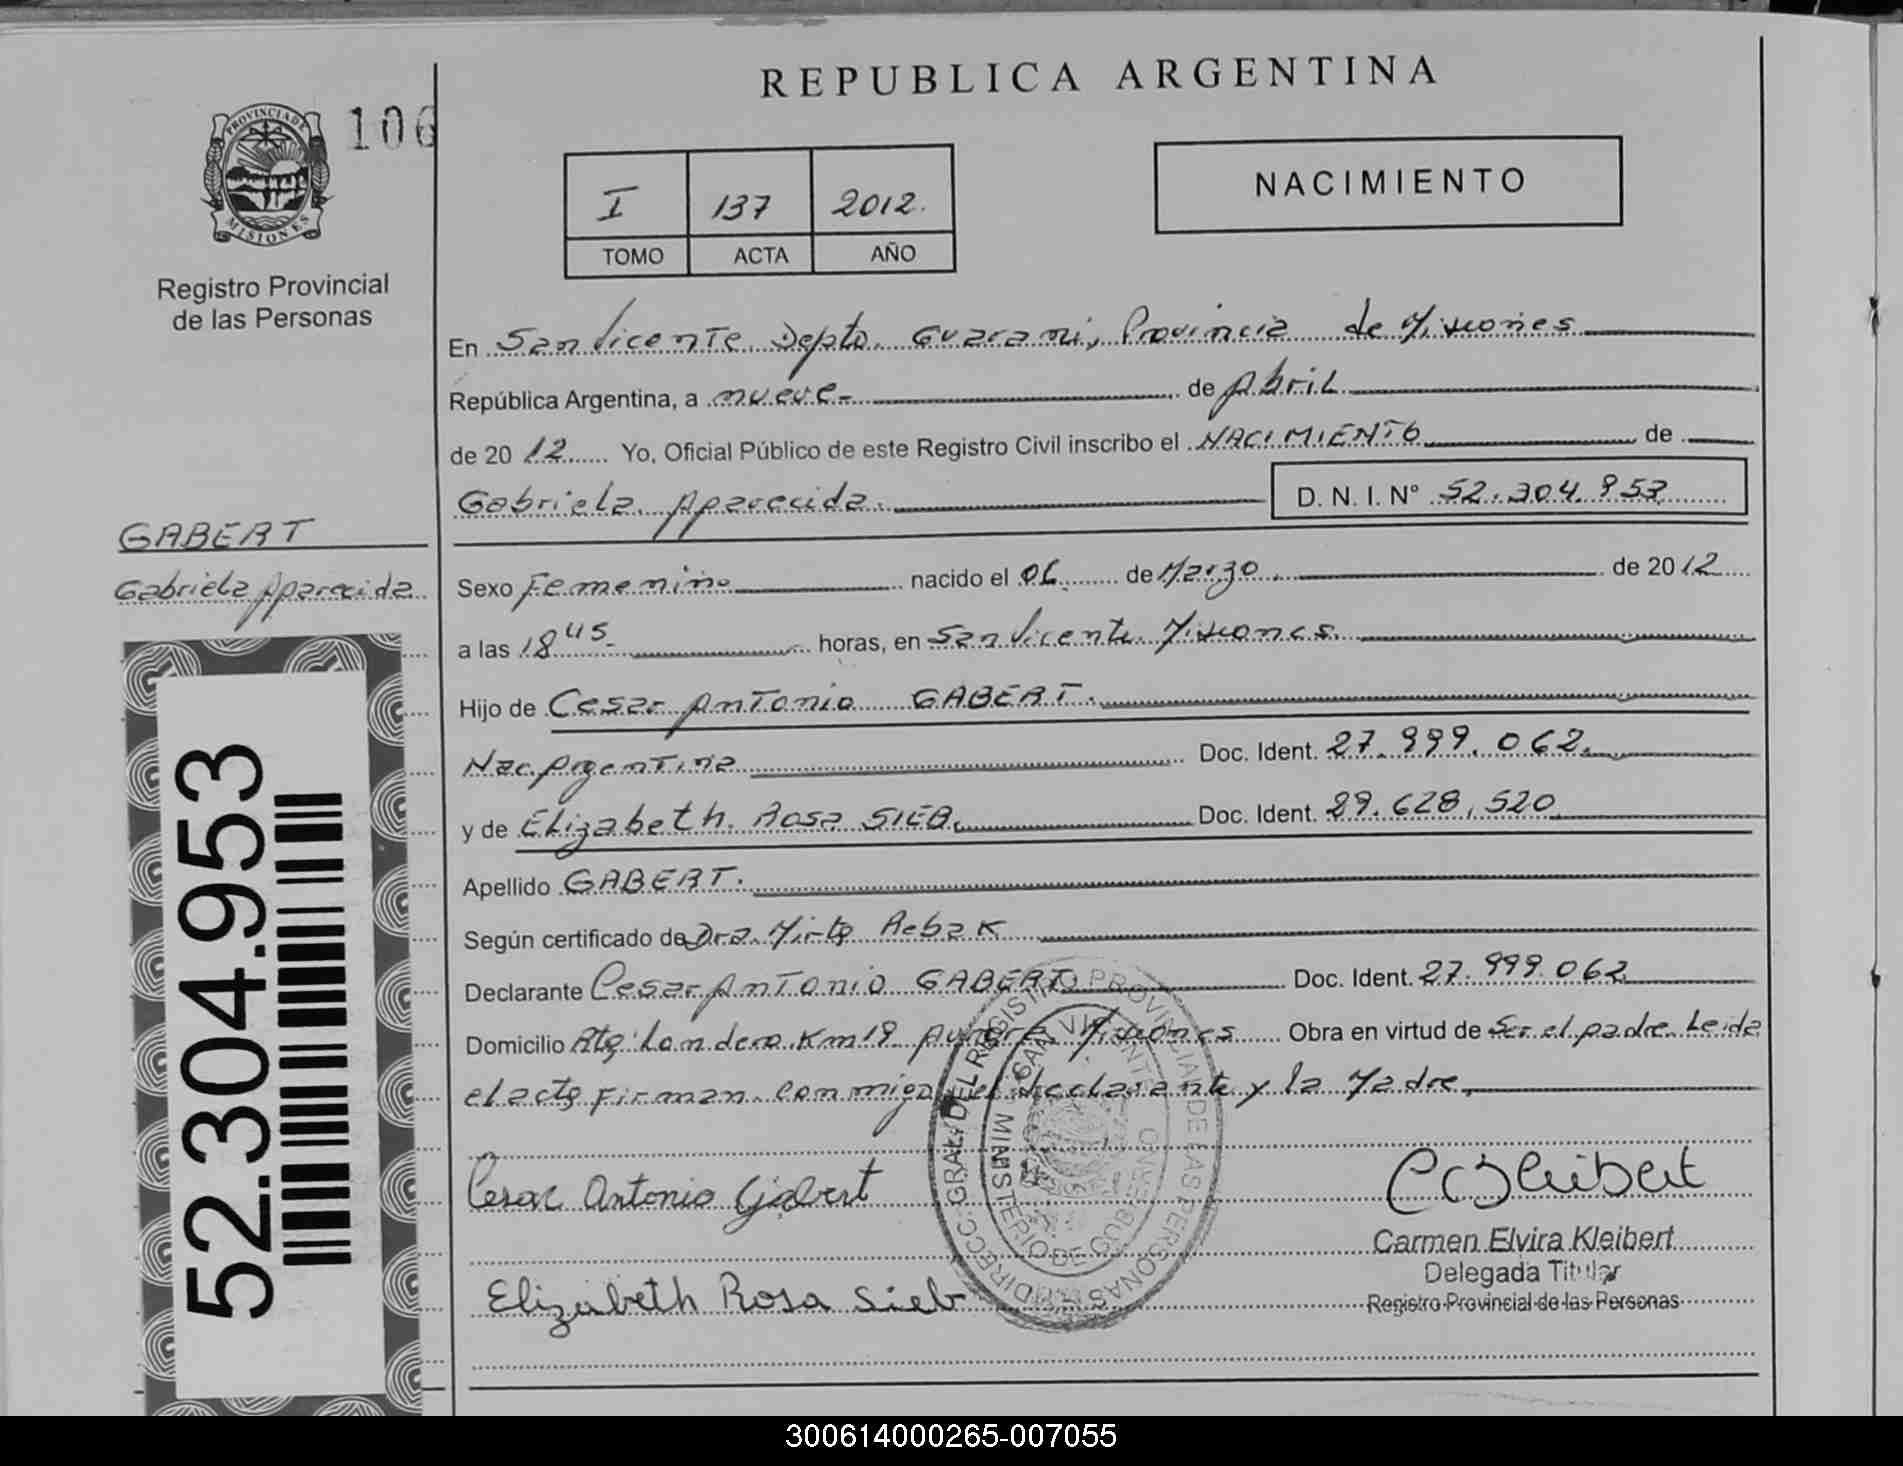 REPUBLICA ARGENTINA
PROVINCIA DE MISIONES
106
Registro Provincial
de las Personas
I 137 2012.
TOMO ACTA AÑO
NACIMIENTO
En San Vicente Depto. Guarani, Provincia de Misiones
República Argentina, a nueve- de Abril
de 2012 Yo, Oficial Público de este Registro Civil inscribo el NACIMIENTO de
Gabriela Aparecida. D. N. I. Nº 52.304.953
GABERT
Gabriela Aparecida
Sexo Femenino nacido el 06 de Marzo de 2012
a las 18 45- horas, en San Vicente Misiones.
Hijo de Cesar Antonio GABERT.
Nac. Argentina Doc. Ident. 27.999.062.
y de Elizabeth Rosa SIEB. Doc. Ident. 29.628.520
Apellido GABERT.
Según certificado de Dra. Mirta Rebak
Declarante Cesar Antonio GABERT Doc. Ident. 27.999.062
Domicilio Km 19 Aurora Misiones Obra en virtud de Ser el padre Leida
el acta Firman conmigo el declarante y la Madre,
Cesar Antonio Gabert
Elizabeth Rosa Sieb
Carmen Elvira Kleibert
Delegada Titular
Registro Provincial de las Personas
DIRECC. GRAL. DEL REGISTRO PROVINCIAL DE LAS PERSONAS
SAN VICENTE
MINISTERIO DE GOBIERNO
52.304.953
300614000265-007055